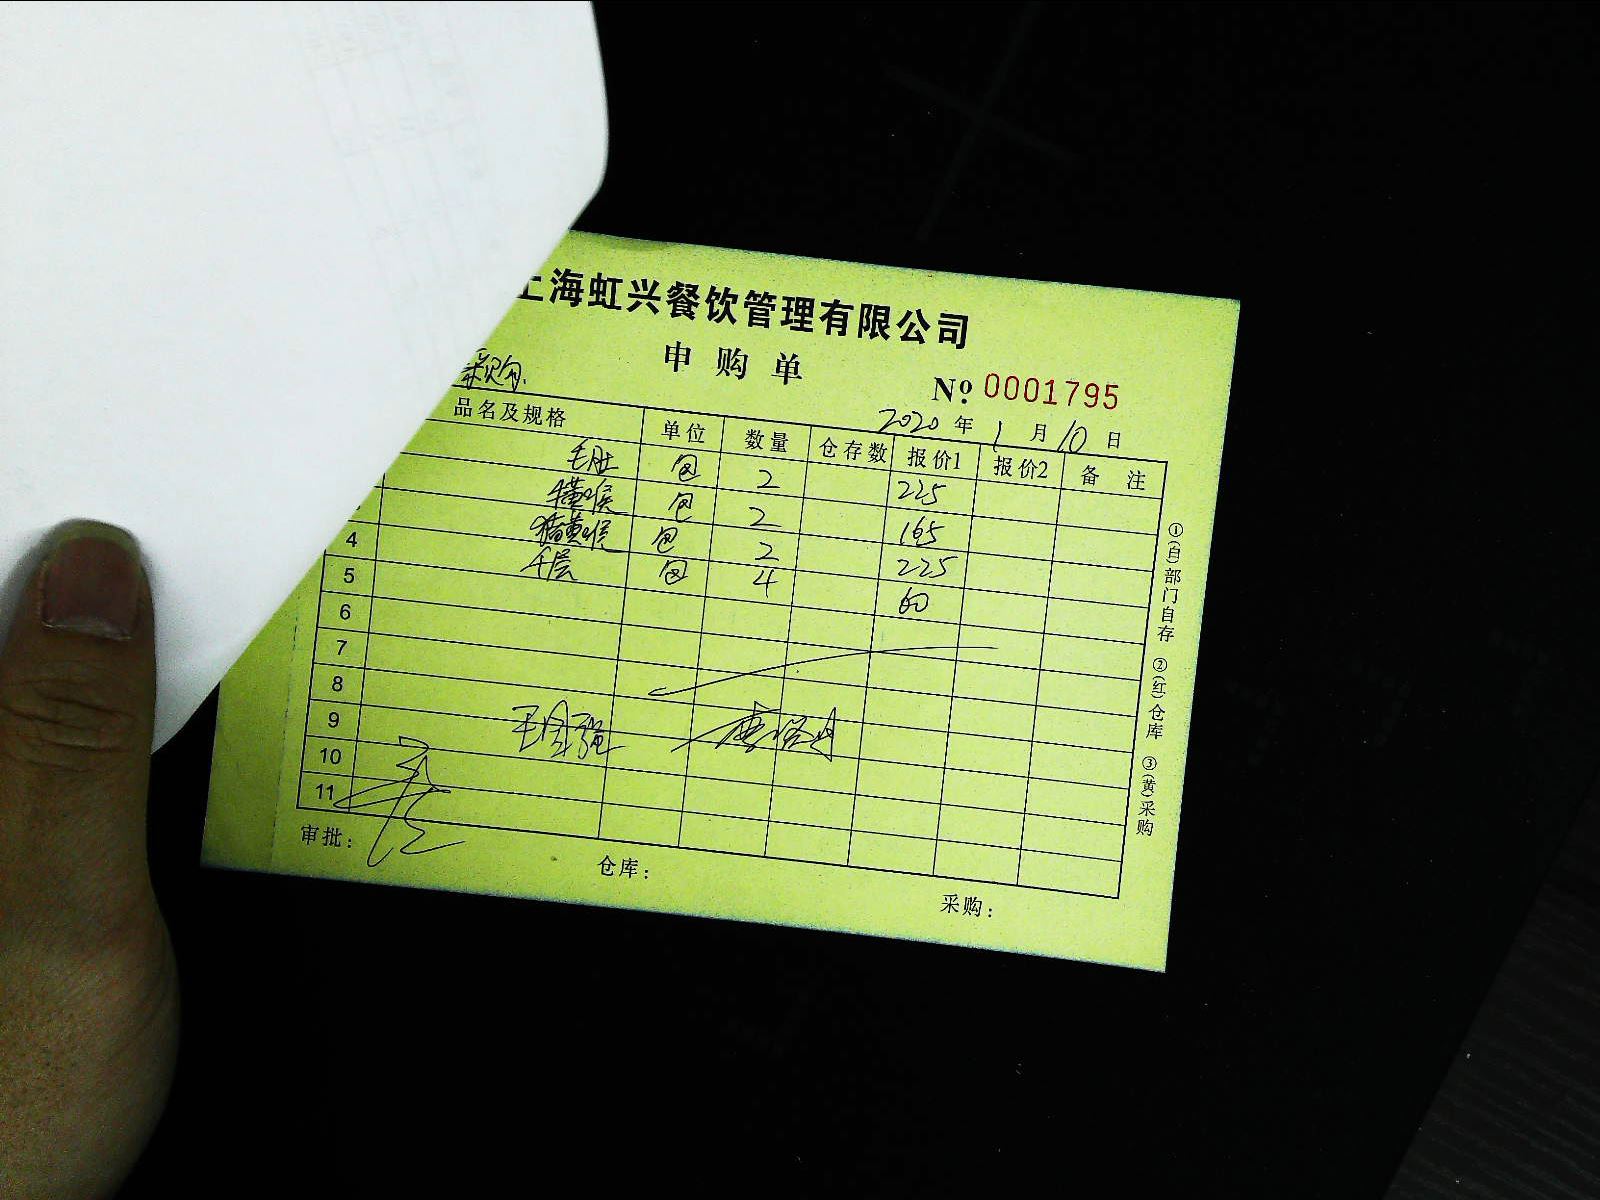 上海虹兴餐饮管理有限公司
申购单
采购.
№ 0001795
2020 年 1 月 10 日
品名及规格 单位 数量 仓存数 报价1 报价2 备 注
毛肚 包 2 225
牛黄喉 包 2 165
猪黄喉 包 2 225
4 千层 包 4 60
5
6
7
8
9
10
11
审批： 仓库： 采购：
①(白)部门自存 ②(红)仓库 ③(黄)采购